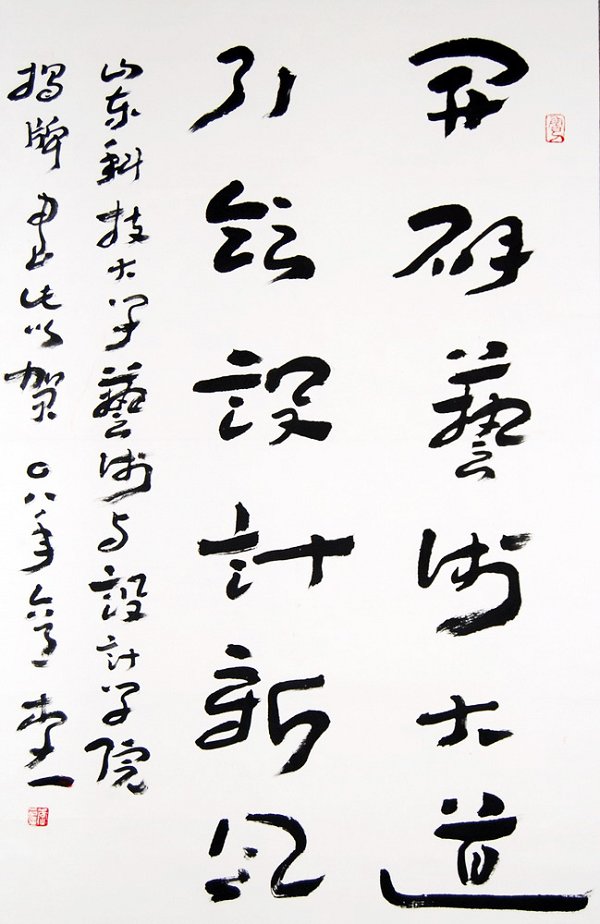 開研藝術大道
引領設計新風
山东科技大学藝術与設計学院
揭牌 書此以贺 〇八年六月 李一